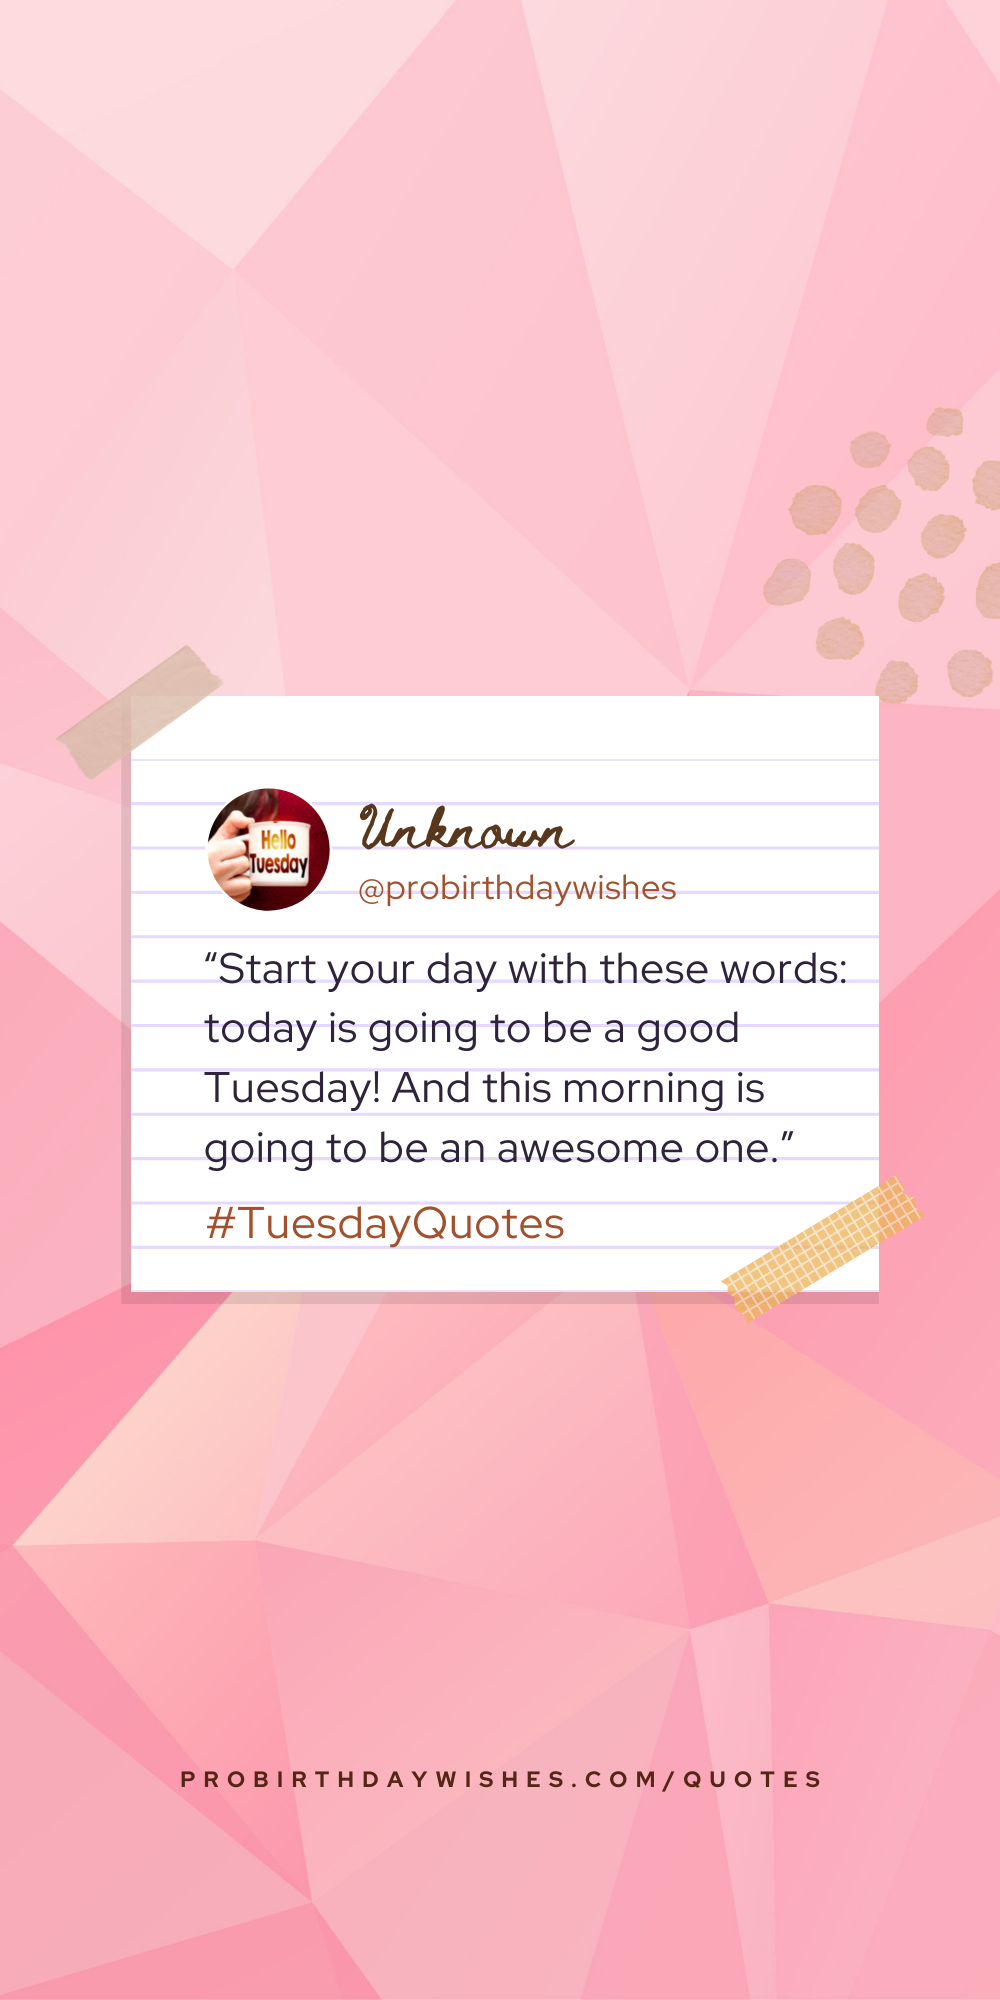 Hello
Tuesday
Unknown
@probirthdaywishes
“Start your day with these words:
today is going to be a good
Tuesday! And this morning is
going to be an awesome one.”
#TuesdayQuotes
PROBIRTHDAYWISHES.COM/QUOTES